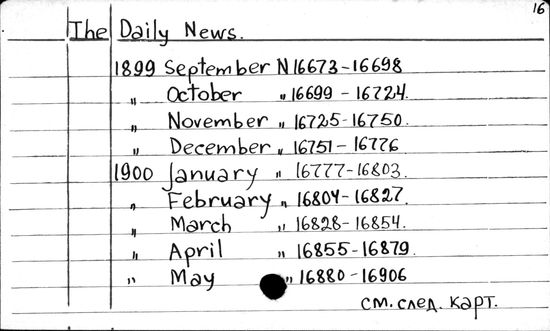 16
The Daily News.
1899 September N 16673-16698
„ October „ 16699 - 16724.
„ November „ 16725-16750.
„ December „ 16751-16776
1900 January „ 16777-16803.
„ February „ 16804-16827.
„ March „ 16828-16854.
„ April „ 16855-16879.
„ May „ 16880-16906
см. след. карт.